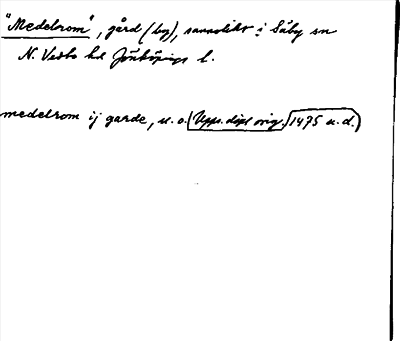 "Medelrom", gård (by), sannolikt i Säby sn
N. Vedbo hd Jönköpings l.
medelrom ij garde, u. o. (Upps. dipl orig. 1475 u. d.)